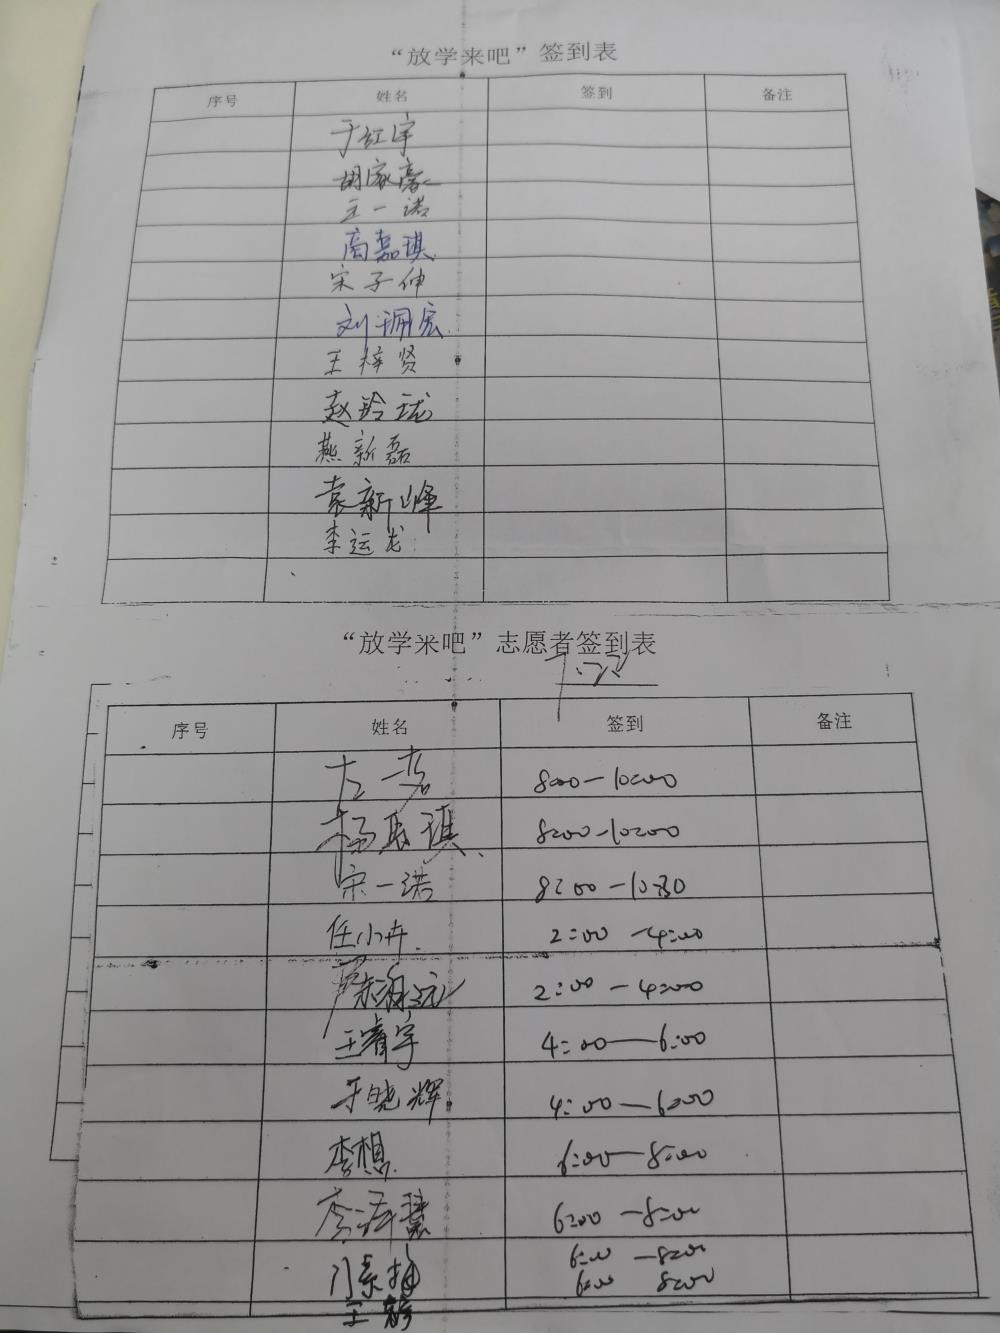 “放学来吧”签到表
序号 姓名 签到 备注
于红宇
胡家豪
王一诺
高磊琪
宋子仲
刘珊宏
王梓贤
赵玲珑
燕新磊
袁新峰
李运龙
“放学来吧”志愿者签到表
序号 姓名 签到 备注
左一茗 8:00—10:00
8:00—10:00
宋一诺 8:00—10:30
任小卉 2:00—4:00
2:00—4:00
王睿宇 4:00—6:00
于晓辉 4:00—6:00
李想 6:00—8:00
6:00—8:00
6:00—8:00
6:00 8:00